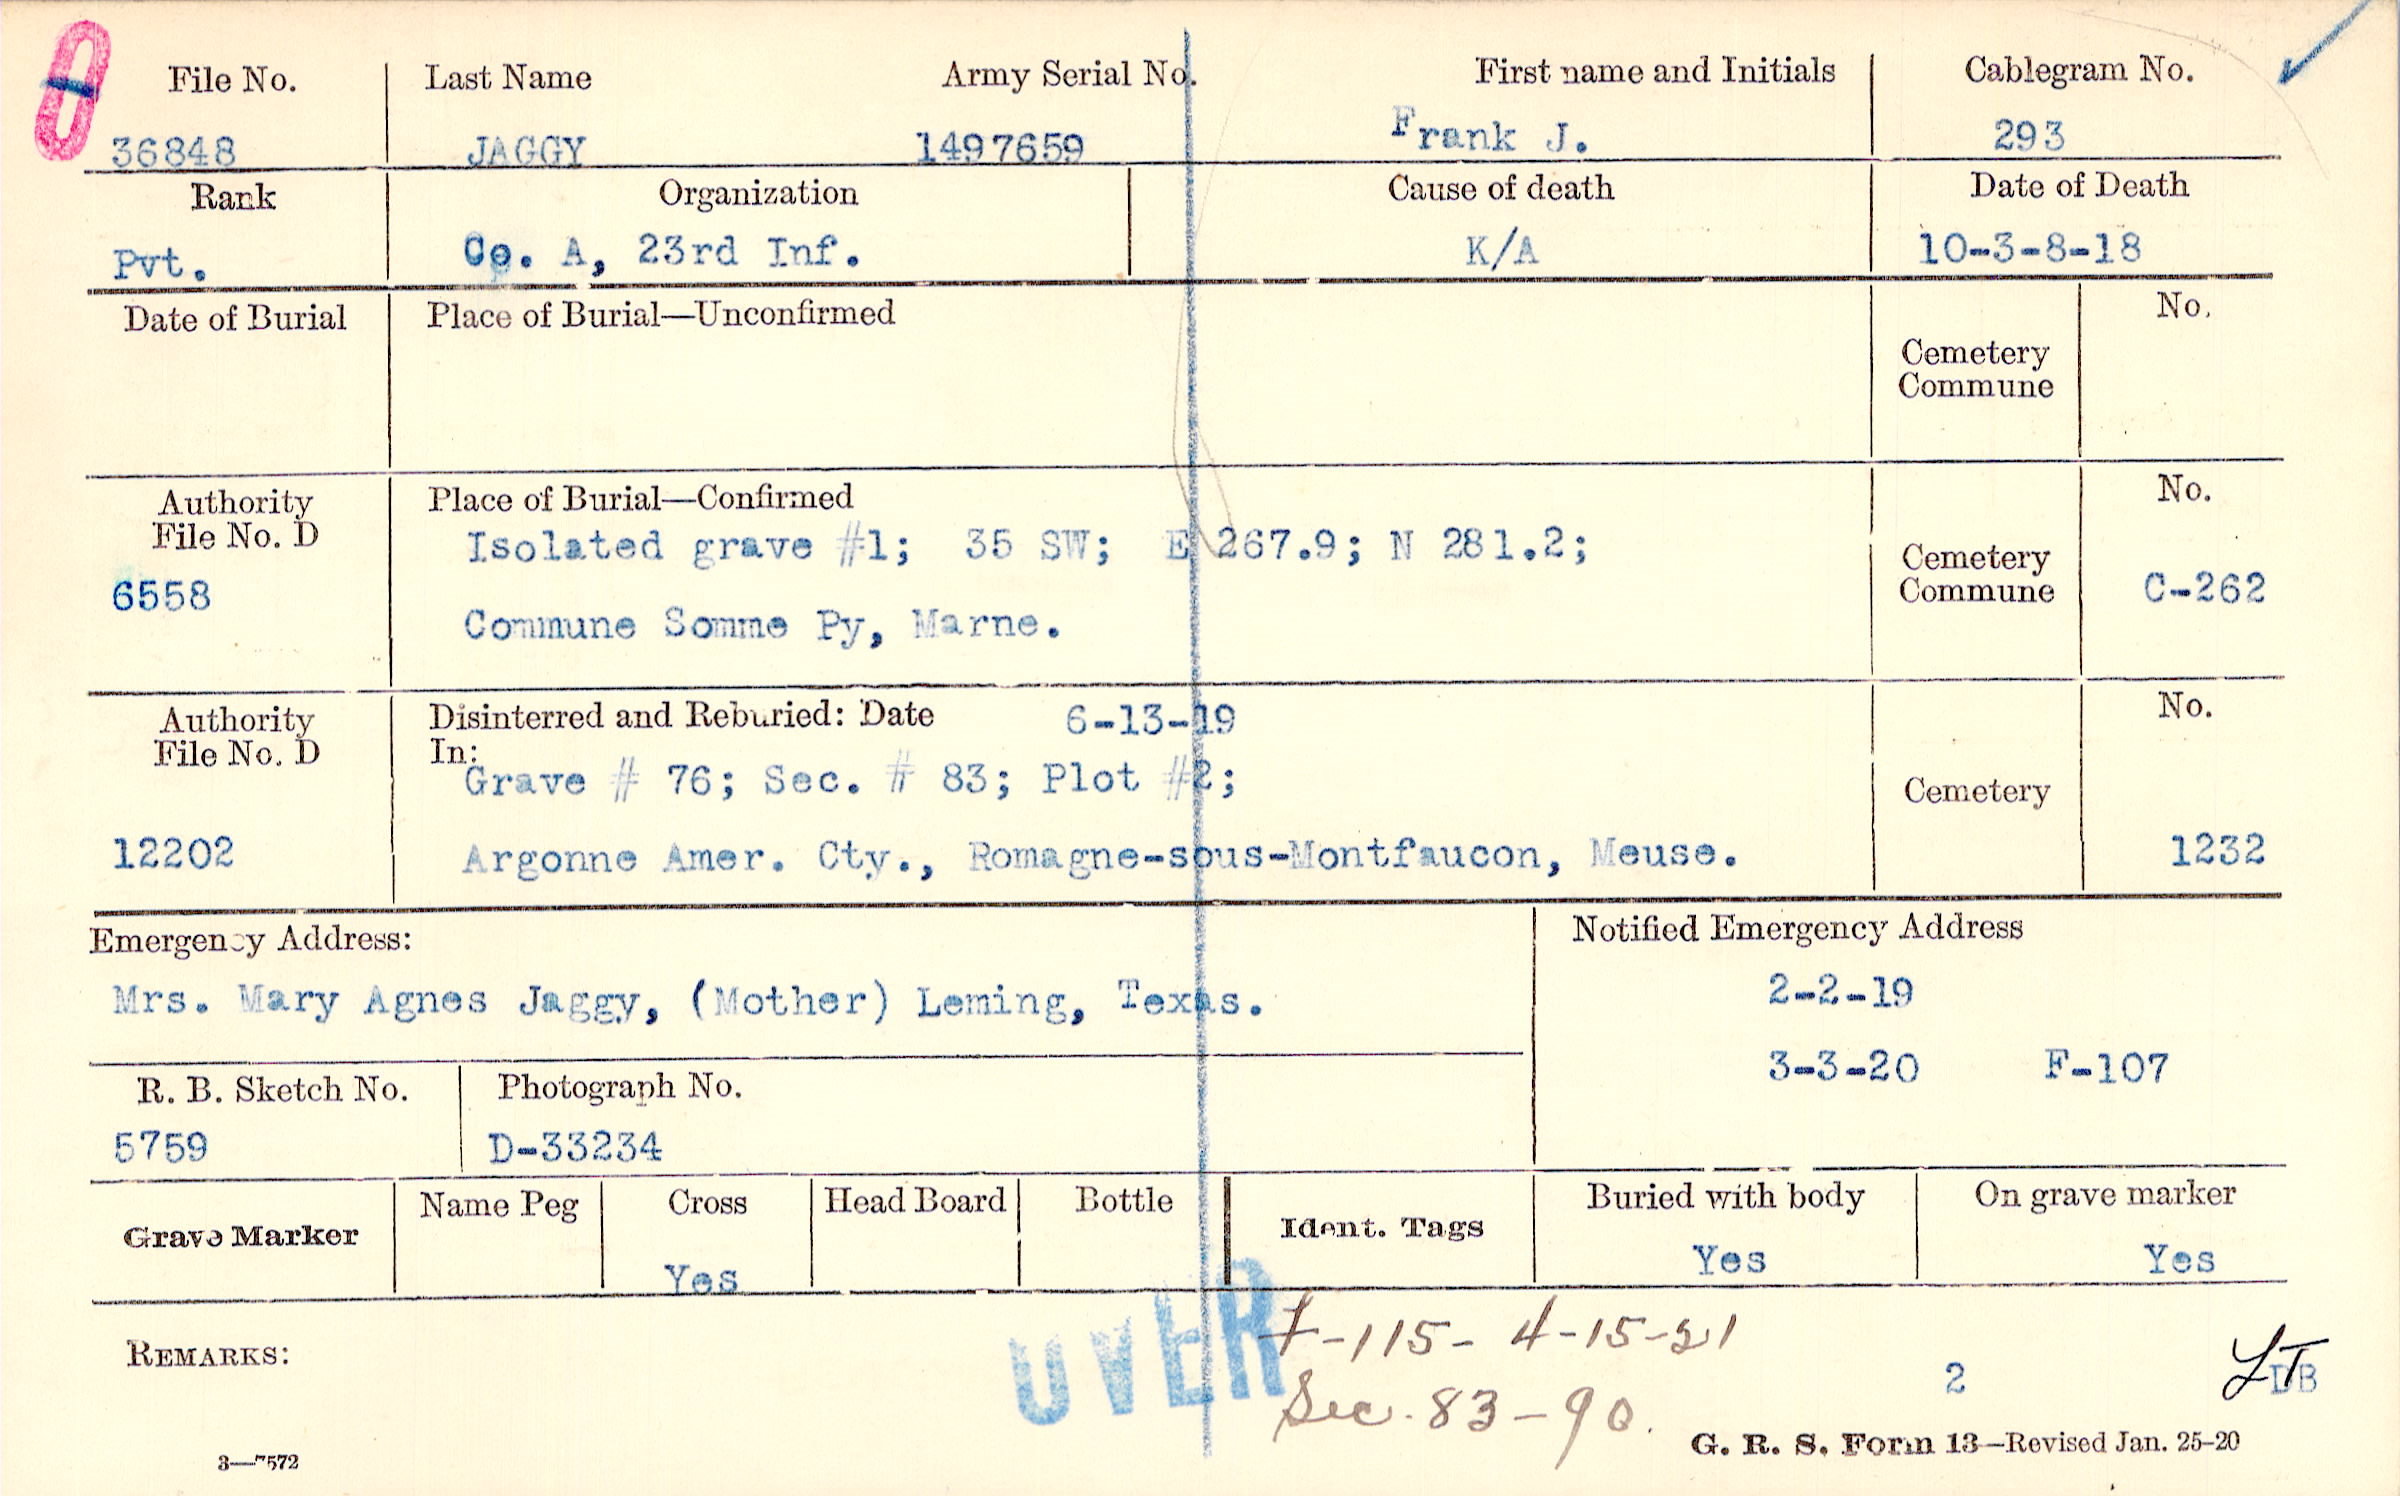 File No. Last Name Army Serial No. First name and Initials Cablegram No.
36848 JAGGY 1497659 Frank J. 293
Rank Organization Cause of death Date of Death
Pvt. Co. A, 23rd Inf. K/A 10-3-8-18
Date of Burial Place of Burial—Unconfirmed No.
Cemetery
Commune
Authority Place of Burial—Confirmed No.
File No. D Isolated grave #1; 35 SW; E 267.9; N 281.2;
Cemetery
6558 Commune C-262
Commune Somme Py, Marne.
Authority Disinterred and Reburied: Date 6-13-19 No.
File No. D In:
Grave # 76; Sec. # 83; Plot #2;
Cemetery
12202 Argonne Amer. Cty., Romagne-sous-Montfaucon, Meuse. 1232
Emergency Address: Notified Emergency Address
Mrs. Mary Agnes Jaggy, (Mother) Leming, Texas. 2-2-19
3-3-20 F-107
R. B. Sketch No. Photograph No.
5759 D-33234
Name Peg Cross Head Board Bottle Buried with body On grave marker
Grave Marker Ident. Tags
Yes Yes Yes
OVER
F-115- 4-15-21
REMARKS:
2 DB
Sec. 83-90.
3—7572 G. R. S. Form 13—Revised Jan. 25-20